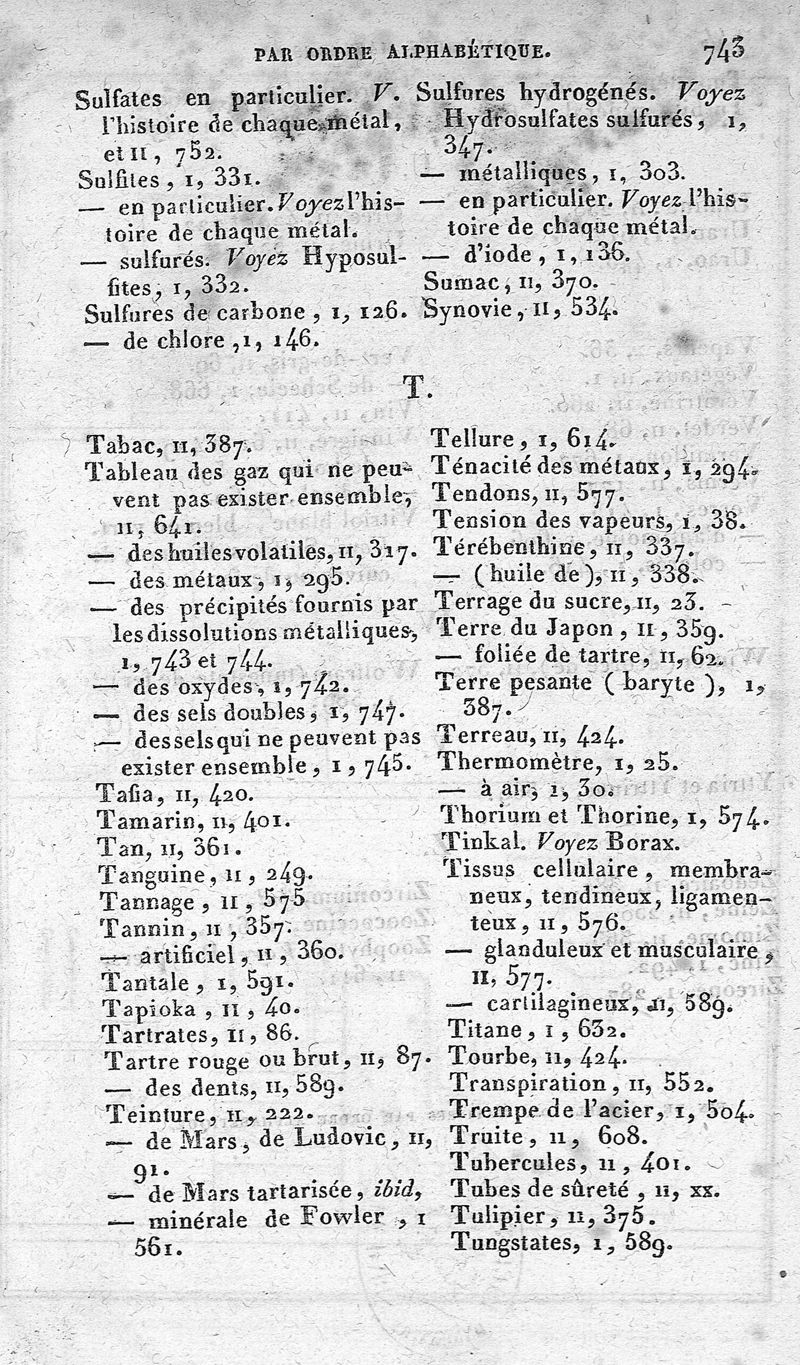 PAR ORDRE ALPHABÉTIQUE. 743
Sulfates en particulier. V.
l'histoire de chaque métal,
et II, 752.
Sulfites, I, 331.
— en particulier. Voyez l'his-
toire de chaque métal.
— sulfurés. Voyez Hyposul-
fites, I, 332.
Sulfures de carbone, I, 126.
— de chlore, I, 146.
Sulfures hydrogénés. Voyez
Hydrosulfates sulfurés, I,
347.
— métalliques, I, 303.
— en particulier. Voyez l'his-
toire de chaque métal.
— d'iode, I, 136.
Sumac, II, 370.
Synovie, II, 534.
T.
Tabac, II, 387.
Tableau des gaz qui ne peu-
vent pas exister ensemble,
II, 641.
— des huiles volatiles, II, 317.
— des métaux, I, 295.
— des précipités fournis par
les dissolutions métalliques,
I, 743 et 744.
— des oxydes, I, 742.
— des sels doubles, I, 747.
— des sels qui ne peuvent pas
exister ensemble, I, 745.
Tafia, II, 420.
Tamarin, II, 401.
Tan, II, 361.
Tanguine, II, 249.
Tannage, II, 575
Tannin, II, 357.
— artificiel, II, 360.
Tantale, I, 591.
Tapioka, II, 40.
Tartrates, II, 86.
Tartre rouge ou brut, II, 87.
— des dents, II, 589.
Teinture, II, 222.
— de Mars, de Ludovic, II,
91.
— de Mars tartarisée, ibid,
— minérale de Fowler, I
561.
Tellure, I, 614.
Ténacité des métaux, I, 294.
Tendons, II, 577.
Tension des vapeurs, I, 38.
Térébenthine, II, 337.
— (huile de), II, 338.
Terrage du sucre, II, 23.
Terre du Japon, II, 359.
— foliée de tartre, II, 62.
Terre pesante (baryte), I,
387.
Terreau, II, 424.
Thermomètre, I, 25.
— à air, I, 30.
Thorium et Thorine, I, 574.
Tinkal. Voyez Borax.
Tissus cellulaire, membra-
neux, tendineux, ligamen-
teux, II, 576.
— glanduleux et musculaire,
II, 577.
— cartilagineux, II, 589.
Titane, I, 632.
Tourbe, II, 424.
Transpiration, II, 552.
Trempe de l'acier, I, 504.
Truite, II, 608.
Tubercules, II, 401.
Tubes de sûreté, II, xx.
Tulipier, II, 375.
Tungstates, I, 589.